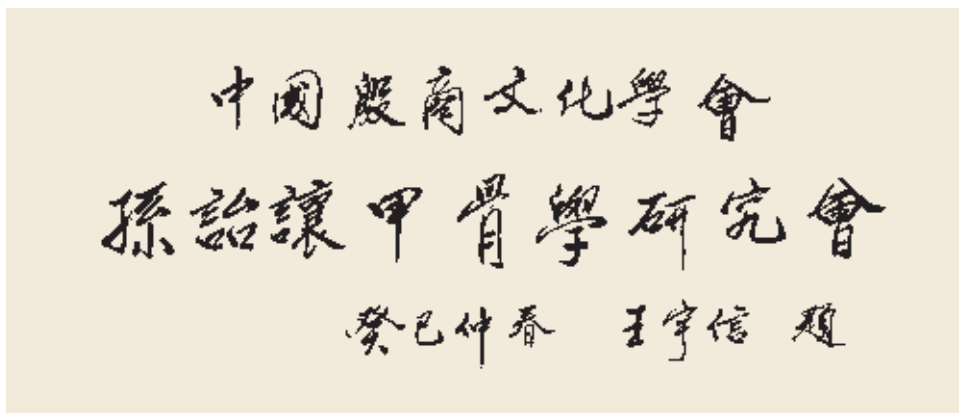 中國殷商文化學會
孫詒讓甲骨學研究會
癸巳仲春 王宇信 題